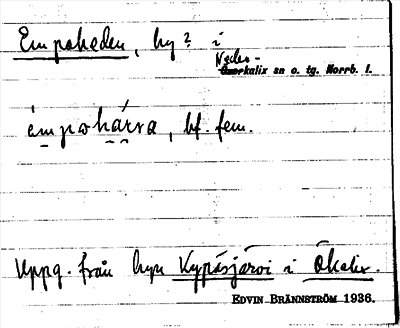 Empoheden, by? i
Neder-
Överkalix sn o. tg. Norrb. l.
émpohárva, bf. fem.
Uppg. från byn Kypåsjärvi i Ökalix.
EDVIN BRÄNNSTRÖM 1936.